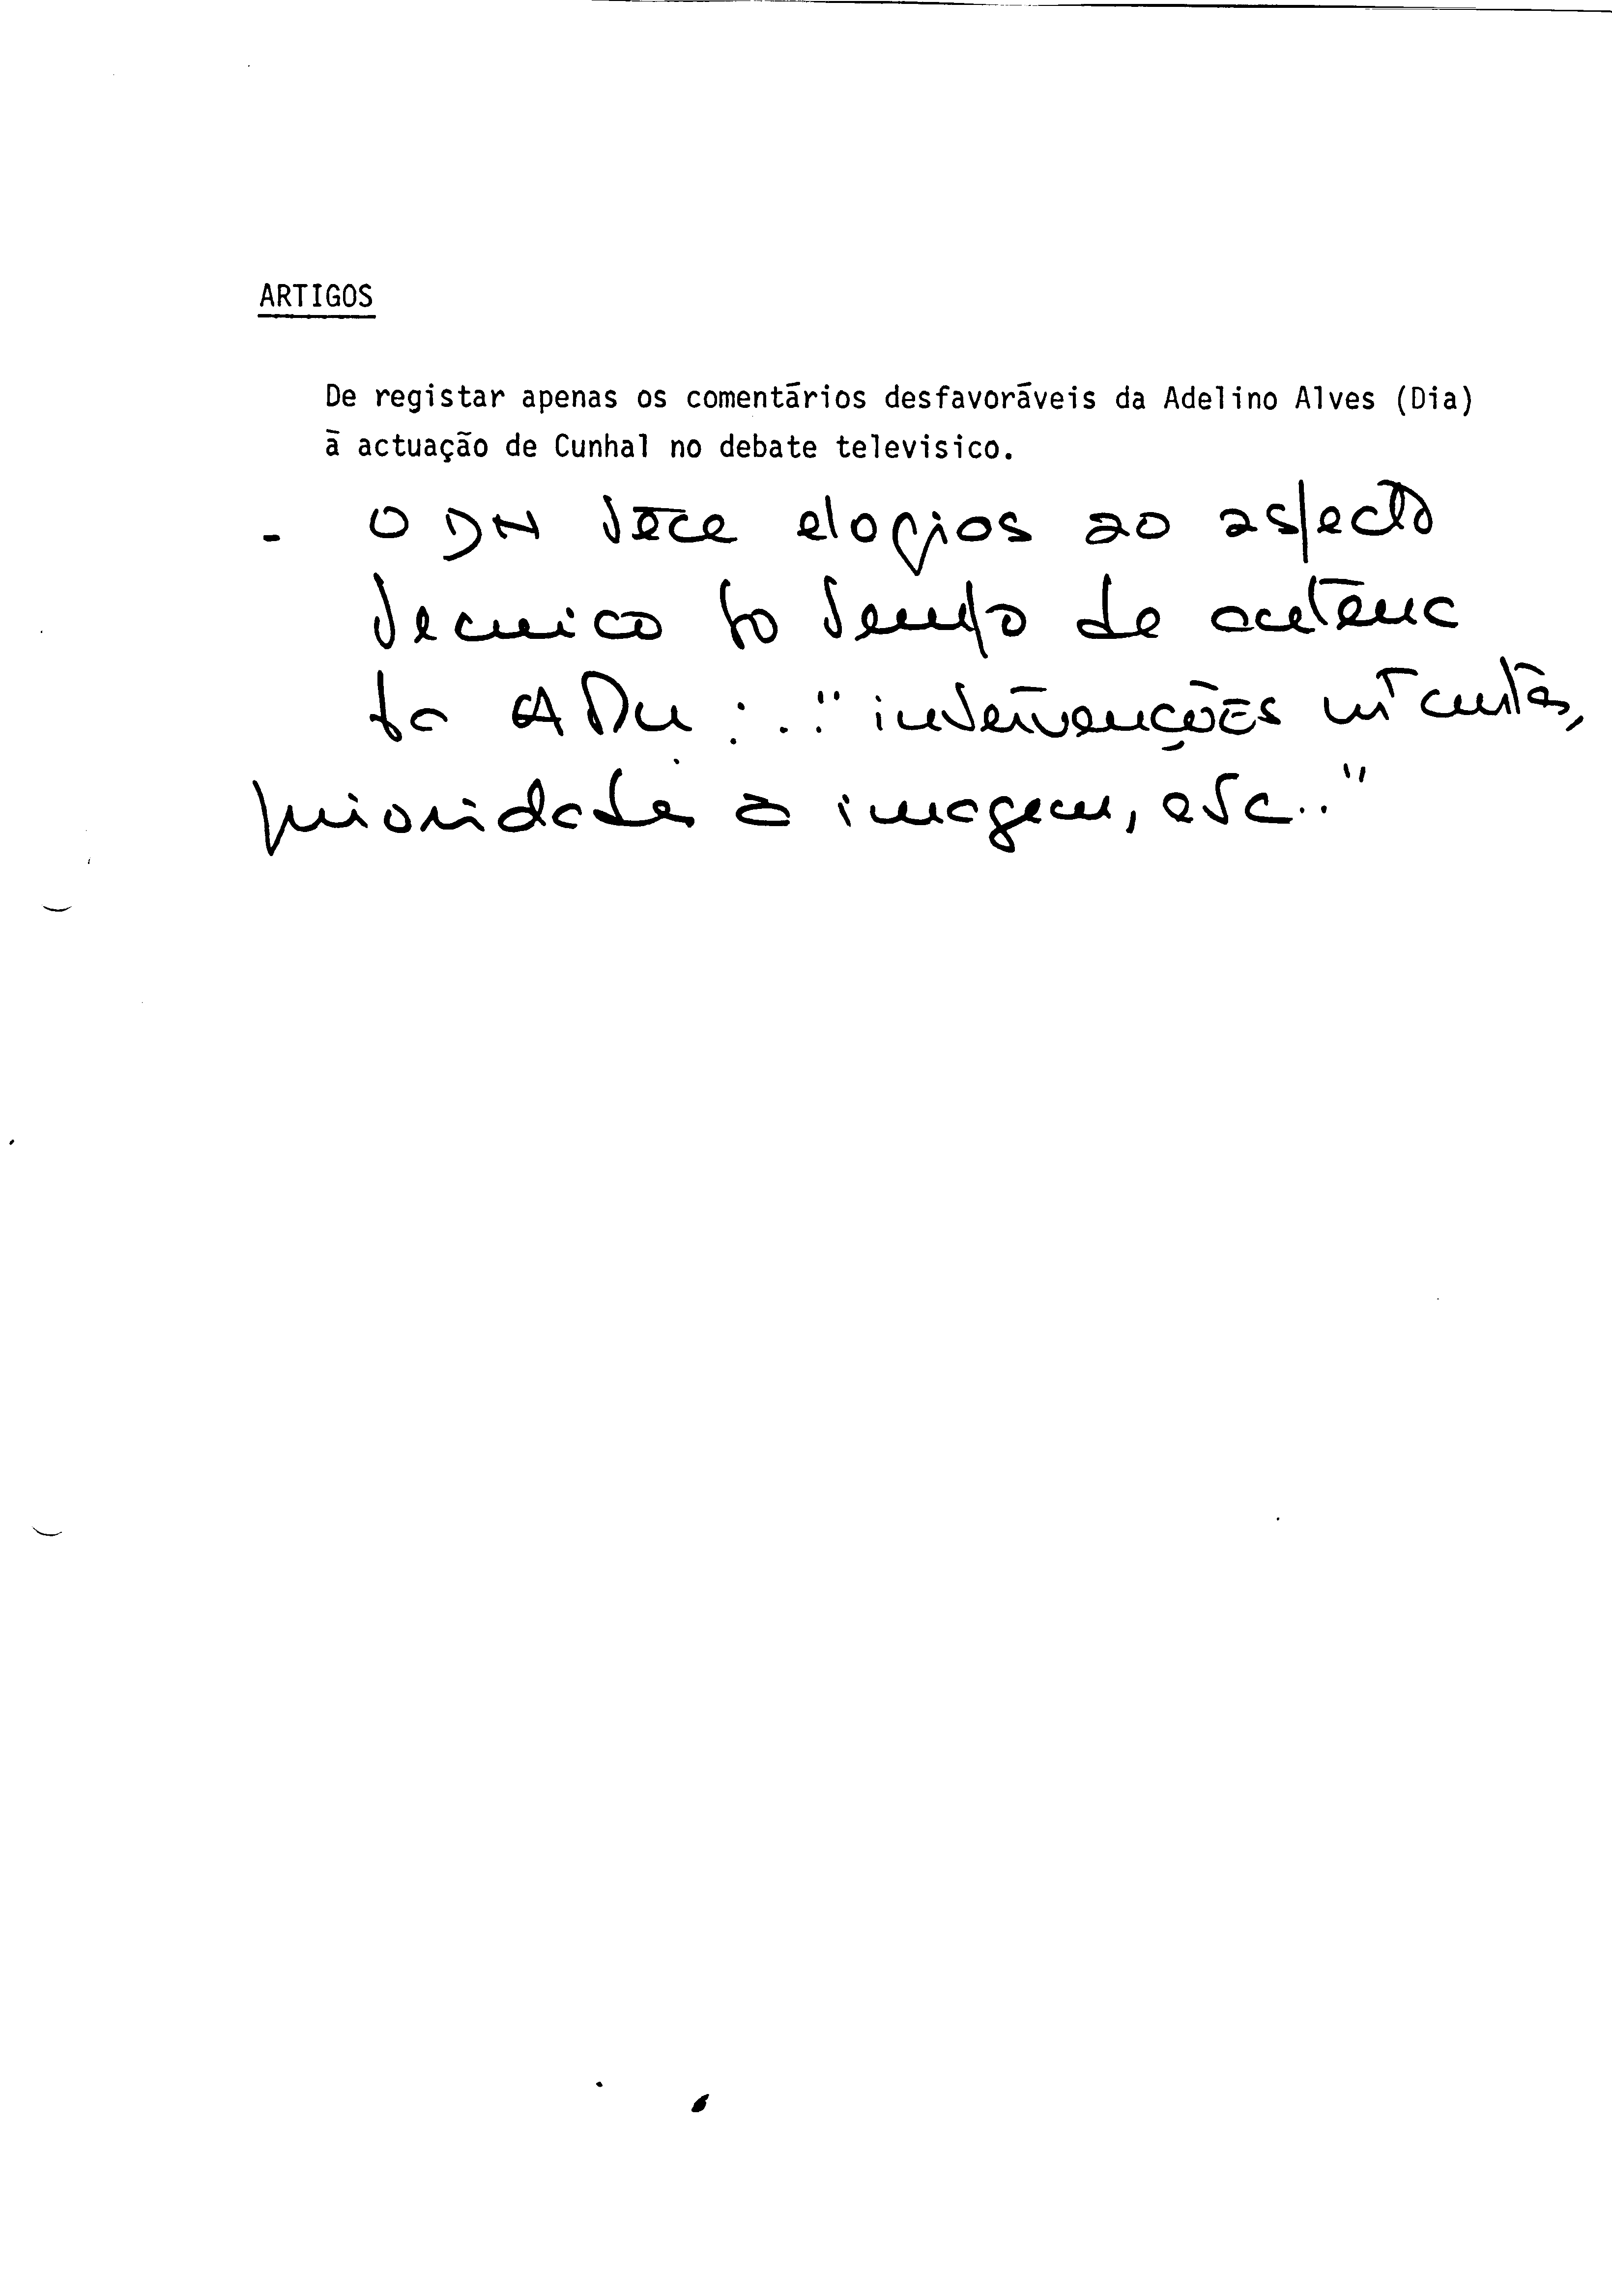 ARTIGOS
De registar apenas os comentários desfavoráveis da Adelino Alves (Dia)
à actuação de Cunhal no debate televisico.
- O DN tece elogios ao aspecto
tecnico do tempo de antena
da AD : . "intervenções mt curtas,
prioridade à imagem, etc.."